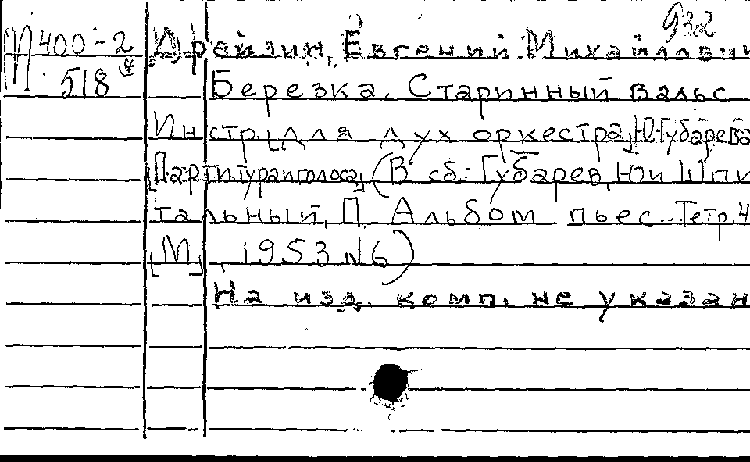 932
М 400-2 Дрейзин, Евгений Михайлович
518 Березка. Старинный вальс
Инстр. для дух оркестра Ю. Губарева
[Партитура и голоса] (В сб.: Губарев, Ю и Шпи
тальный, П. Альбом пьес. Тетр. 4
[М], 1953 № 6)
На изд. комп. не указан